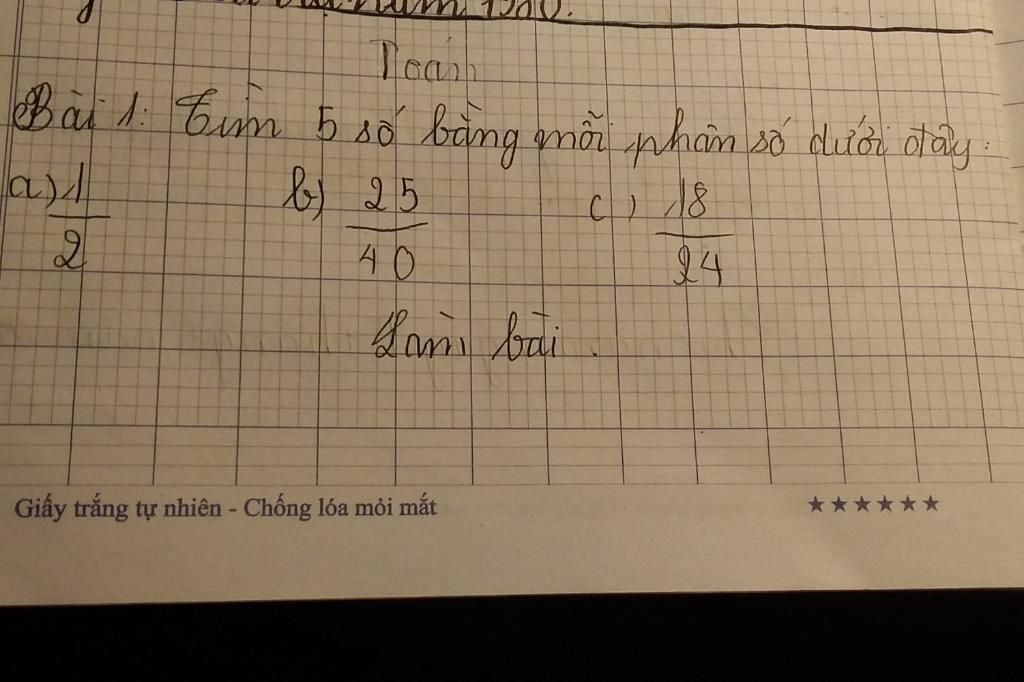 năm 1980.
Toán
Bài 1: Tìm 5 số bằng mỗi phân số dưới đây:
a) 1/2 b) 25/40 c) 18/24
Làm bài.
Giấy trắng tự nhiên - Chống lóa mỏi mắt ★★★★★★